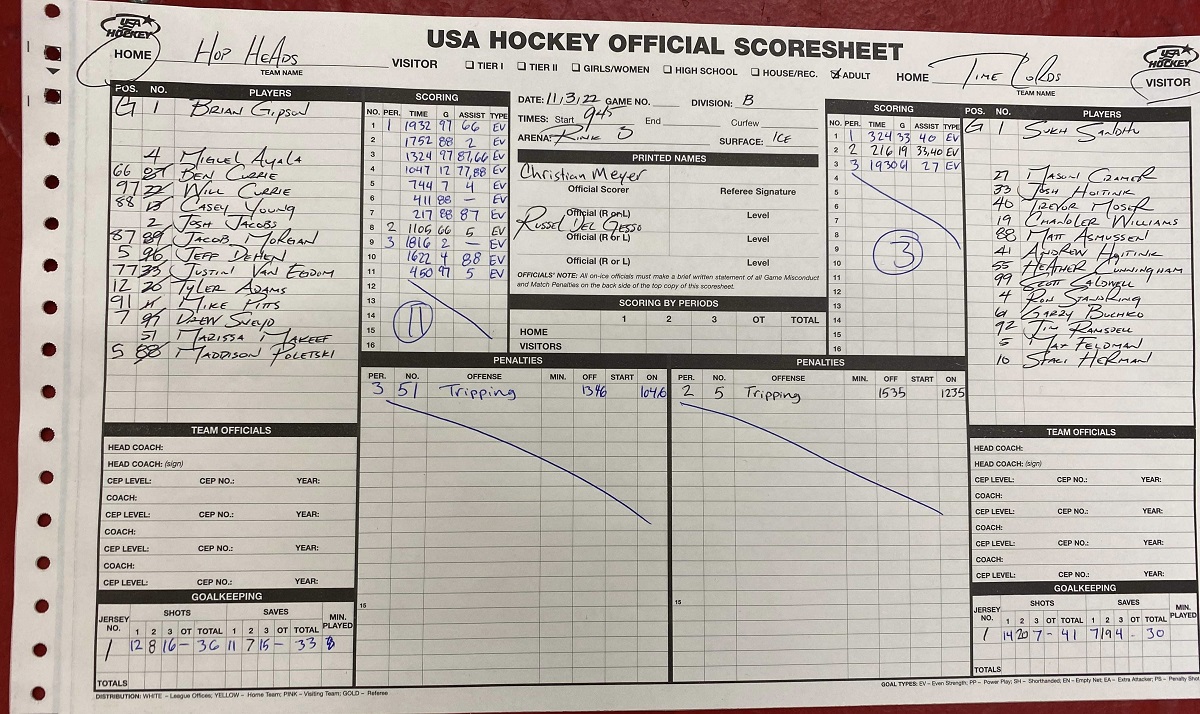 USA HOCKEY
HOME Hop Heads VISITOR
TEAM NAME
USA HOCKEY OFFICIAL SCORESHEET
TIER I TIER II GIRLS/WOMEN HIGH SCHOOL HOUSE/REC. ADULT
HOME Time Lords VISITOR
TEAM NAME
USA HOCKEY
POS. NO. PLAYERS
G 1 Brian Gipson
4 Miguel Ayala
66 Ben Currie
97 22 Will Currie
88 Casey Young
2 Josh Jacobs
87 89 Jacob Morgan
5 96 Jeff Dehen
77 33 Justin Van Egdom
12 20 Tyler Adams
91 11 Mike Pitts
7 Drew Sneyd
51 Marissa Makeef
5 88 Maddison Poletski
SCORING
NO. PER. TIME G ASSIST TYPE
1 1 1932 97 66 EV
2 1752 88 2 EV
3 1324 97 87,66 EV
4 1047 12 77,88 EV
5 744 7 4 EV
6 411 88 – EV
7 217 88 87 EV
8 2 1105 66 5 EV
9 3 1816 2 – EV
10 1622 4 88 EV
11 450 97 5 EV
12
13
14
15
16
11
DATE: 11/3/22 GAME NO. DIVISION: B
TIMES: Start 945 End Curfew
ARENA: Rink 3 SURFACE: ICE
PRINTED NAMES
Christian Meyer
Official Scorer Referee Signature
Official (R or L) Level
Russel Del Gesso
Official (R or L) Level
Official (R or L) Level
OFFICIALS' NOTE: All on-ice officials must make a brief written statement of all Game Misconduct
and Match Penalties on the back side of the top copy of this scoresheet.
SCORING BY PERIODS
1 2 3 OT TOTAL
HOME
VISITORS
SCORING
NO. PER. TIME G ASSIST TYPE
1 1 324 33 40 EV
2 2 216 19 33,40 EV
3 3 1930 61 27 EV
4
5
6
7
8
9
10
11
12
13
14
15
16
3
POS. NO. PLAYERS
G 1 Sukh Sandhu
27 Mason Cramer
33 Josh Hoitink
40 Trevor Moser
19 Chandler Williams
88 Matt Asmussen
41 Andrew Hoitink
55 Heather Cunningham
99 Scott Caldwell
4 Ron Standring
61 Garry Buchko
92 Tim Ramsdell
5 Max Feldman
10 Staci Herman
PENALTIES
PER. NO. OFFENSE MIN. OFF START ON
3 51 Tripping 1346 1046
15
PENALTIES
PER. NO. OFFENSE MIN. OFF START ON
2 5 Tripping 1535 1235
15
TEAM OFFICIALS
HEAD COACH:
HEAD COACH: (sign)
CEP LEVEL: CEP NO.: YEAR:
COACH:
CEP LEVEL: CEP NO.: YEAR:
COACH:
CEP LEVEL: CEP NO.: YEAR:
COACH:
CEP LEVEL: CEP NO.: YEAR:
GOALKEEPING
JERSEY NO. SHOTS SAVES MIN. PLAYED
1 2 3 OT TOTAL 1 2 3 OT TOTAL
1 12 8 16 – 36 11 7 15 – 33
TOTALS
TEAM OFFICIALS
HEAD COACH:
HEAD COACH: (sign)
CEP LEVEL: CEP NO.: YEAR:
COACH:
CEP LEVEL: CEP NO.: YEAR:
COACH:
CEP LEVEL: CEP NO.: YEAR:
COACH:
CEP LEVEL: CEP NO.: YEAR:
GOALKEEPING
JERSEY NO. SHOTS SAVES MIN. PLAYED
1 2 3 OT TOTAL 1 2 3 OT TOTAL
1 14 20 7 – 41 7 19 4 – 30
TOTALS
DISTRIBUTION: WHITE – League Offices; YELLOW – Home Team; PINK – Visiting Team; GOLD – Referee
GOAL TYPES: EV – Even Strength; PP – Power Play; SH – Shorthanded; EN – Empty Net; EA – Extra Attacker; PS – Penalty Shot